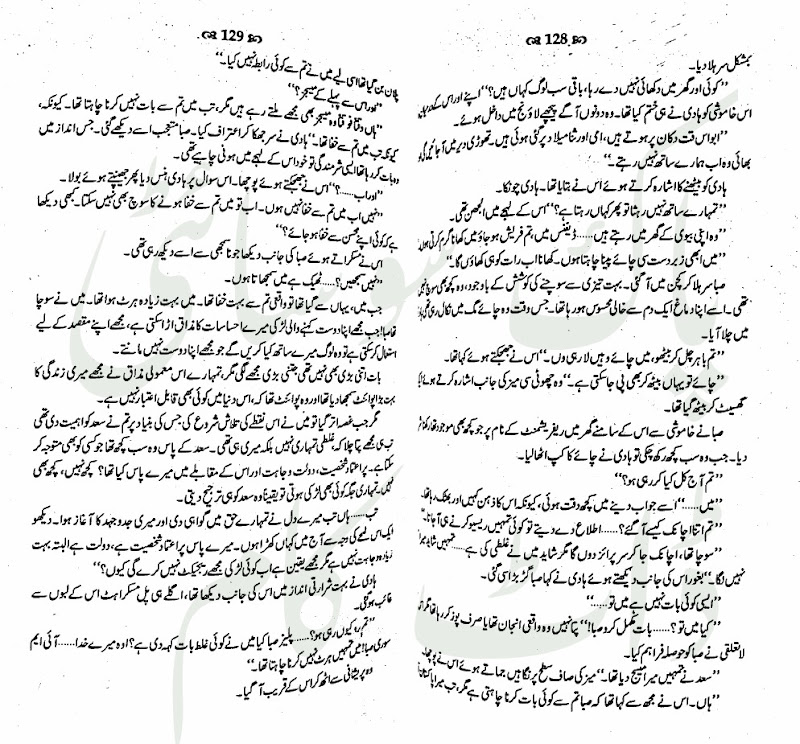 128
بمشکل سر ہلا دیا۔
”کوئی اور گھر میں دکھائی نہیں دے رہا، باقی سب لوگ کہاں ہیں؟“ اپنے اور اس کے درمیان
اس خاموشی کو ہادی نے ہی ختم کیا تھا۔ وہ دونوں آگے پیچھے لاؤنج میں داخل ہوئے۔
”ابو اس وقت دکان پر ہوتے ہیں، امی اور ثنا میلاد پر گئی ہوئی ہیں۔ تھوڑی دیر میں آ جائیں گی
بھائی وہ اب ہمارے ساتھ نہیں رہتے۔“
ہادی کو بیٹھنے کا اشارہ کرتے ہوئے اس نے بتایا تھا۔ ہادی چونکا۔
”تمہارے ساتھ نہیں رہتا تو پھر کہاں رہتا ہے؟“ اس کے لہجے میں الجھن تھی۔
”وہ اپنی بیوی کے گھر میں رہتے ہیں……ڈیفنس میں، تم فریش ہو جاؤ میں کھانا گرم کرتی ہوں
”میں ابھی زبردست سی چائے پینا چاہتا ہوں۔ کھانا اب رات کو ہی کھاؤں گا۔“
صبا سر ہلا کر کچن میں آ گئی۔ بہت تیزی سے سوچنے کی کوشش کے باوجود، وہ کچھ بھی سوچ
تھی۔ اسے اپنا دماغ ایک دم سے خالی محسوس ہو رہا تھا۔ جس وقت وہ چائے مگ میں نکال رہی تھی
میں چلا آیا۔
”تم باہر چل کر بیٹھو، میں چائے وہیں لا رہی ہوں۔“ اس نے جھجکتے ہوئے کہا تھا۔
”چائے تو یہاں بیٹھ کر بھی پی جا سکتی ہے۔“ وہ چھوٹی سی میز کی جانب اشارہ کرتے ہوئے
گھسیٹ کر بیٹھ گیا تھا۔
صبا نے خاموشی سے اس کے سامنے گھر میں ریفریشمنٹ کے نام پر جو کچھ بھی موجود تھا
دیا۔ جب وہ سب کچھ رکھ چکی تو ہادی نے چائے کا کپ اٹھا لیا۔
”تم آج کل کیا کر رہی ہو؟“
”میں……“ اسے جواب دینے میں کچھ وقت ہوئی، کیونکہ اس کا ذہن کہیں اور بھٹک رہا تھا۔
”تم اتنا اچانک کیسے آ گئے؟……اطلاع دے دیتے تو کوئی تمہیں ریسیو کرنے ہی آ جاتا۔“
”سوچا تھا، اچانک جا کر سرپرائز دوں گا مگر شاید میں نے غلطی کی ہے……تمہیں شاید
نہیں لگا۔“ بغور اس کی جانب دیکھتے ہوئے ہادی نے کہا صبا گڑبڑا سی گئی۔
”ایسی کوئی بات نہیں ہے میں تو……“
”کیا میں تو؟……بات مکمل کرو صبا!“ پتا نہیں وہ واقعی انجان تھا یا صرف پوز کر رہا تھا
لاتعلقی نے صبا کو حوصلہ فراہم کیا۔
”سعد نے تمہیں میرا میسج دیا تھا۔“ میز کی صاف سطح پر نگاہیں جماتے ہوئے اس نے پوچھا۔
”ہاں۔ اس نے مجھ سے کہا تھا کہ صبا تم سے کوئی بات کرنا چاہتی ہے مگر، تب میرا پاکستان
129
پلان بن گیا تھا اسی لیے میں نے تم سے کوئی رابطہ نہیں کیا۔“
”اور اس سے پہلے کے میسجز؟“
”ہاں وقتاً فوقتاً وہ میسجز بھی مجھے ملتے رہے ہیں مگر، تب میں تم سے بات نہیں کرنا چاہتا تھا۔ کیونکہ،
کیونکہ تب میں تم سے خفا تھا۔“ ہادی نے سر جھکا کر اعتراف کیا۔ صبا متعجب اسے دیکھے گئی۔ جس انداز میں
وہ بات کر رہا تھا ایسی شرمندگی تو خود اس کے لہجے میں ہونی چاہیے تھی۔
”اور اب……؟“ اس نے جھجکتے ہوئے پوچھا۔ اس سوال پر ہادی ہنس دیا پھر جھینپتے ہوئے بولا۔
”نہیں اب میں تم سے خفا نہیں ہوں۔ اب تو میں تم سے خفا ہونے کا سوچ بھی نہیں سکتا۔ کبھی دیکھا
ہے کہ کوئی اپنے محسن سے خفا ہو جائے؟“
اس نے مسکراتے ہوئے صبا کی جانب دیکھا جو نا سمجھی سے اسے دیکھ رہی تھی۔
”نہیں سمجھیں؟……ٹھیک ہے میں سمجھاتا ہوں۔
جب میں، یہاں سے گیا تھا تو واقعی تم سے بہت خفا تھا۔ میں بہت زیادہ ہرٹ ہوا تھا۔ میں نے سوچا
تھا صبا! جب مجھے اپنا دوست کہنے والی لڑکی میرے احساسات کا مذاق اڑا سکتی ہے، مجھے اپنے مقصد کے لیے
استعمال کر سکتی ہے تو وہ لوگ میرے ساتھ کیا کریں گے جو مجھے اپنا دوست نہیں مانتے۔
بات اتنی بڑی بھی نہیں تھی جتنی بڑی مجھے لگی مگر، تمہارے اس معمولی مذاق نے مجھے میری زندگی کا
بہت بڑا پوائنٹ سمجھا دیا تھا اور وہ پوائنٹ تھا کہ، اس دنیا میں کوئی بھی قابل اعتبار نہیں ہے۔
مگر جب غصہ اتر گیا تو میں نے اس نقطے کی تلاش شروع کی جس کی بنیاد پر تم نے سعد کو اہمیت دی تھی
تب ہی مجھے پتا چلا کہ، غلطی تمہاری نہیں بلکہ میری ہی تھی۔ سعد کے پاس وہ سب کچھ تھا جو کسی کو بھی متوجہ کر
سکتا ہے۔ پر اعتماد شخصیت، دولت، وجاہت اور اس کے مقابلے میں میرے پاس کیا تھا؟ کچھ نہیں، کچھ بھی
نہیں۔ تمہاری جگہ کوئی بھی لڑکی ہوتی تو یقیناً وہ سعد کو ہی ترجیح دیتی۔
تب……ہاں تب میرے دل نے تمہارے حق میں گواہی دی اور میری جدوجہد کا آغاز ہوا۔ دیکھو
ایک اس لمحے کی وجہ سے آج میں کہاں کھڑا ہوں۔ میرے پاس پر اعتماد شخصیت ہے، دولت ہے البتہ بہت
زیادہ وجاہت نہیں ہے مگر مجھے یقین ہے اب کوئی لڑکی مجھے ریجیکٹ نہیں کرے گی کیوں؟“
ہادی نے بہت شرارتی انداز میں اس کی جانب دیکھا تھا، اگلے ہی پل مسکراہٹ اس کے لبوں سے
غائب ہو گئی۔
”تم، کیوں رہی ہو؟……پلیز صبا کیا میں نے کوئی غلط بات کہہ دی ہے؟ اوہ میرے خدا……آئی ایم
سوری صبا! میں تمہیں ہرٹ نہیں کرنا چاہتا تھا۔“
وہ پریشانی سے اٹھ کر اس کے قریب آ گیا۔